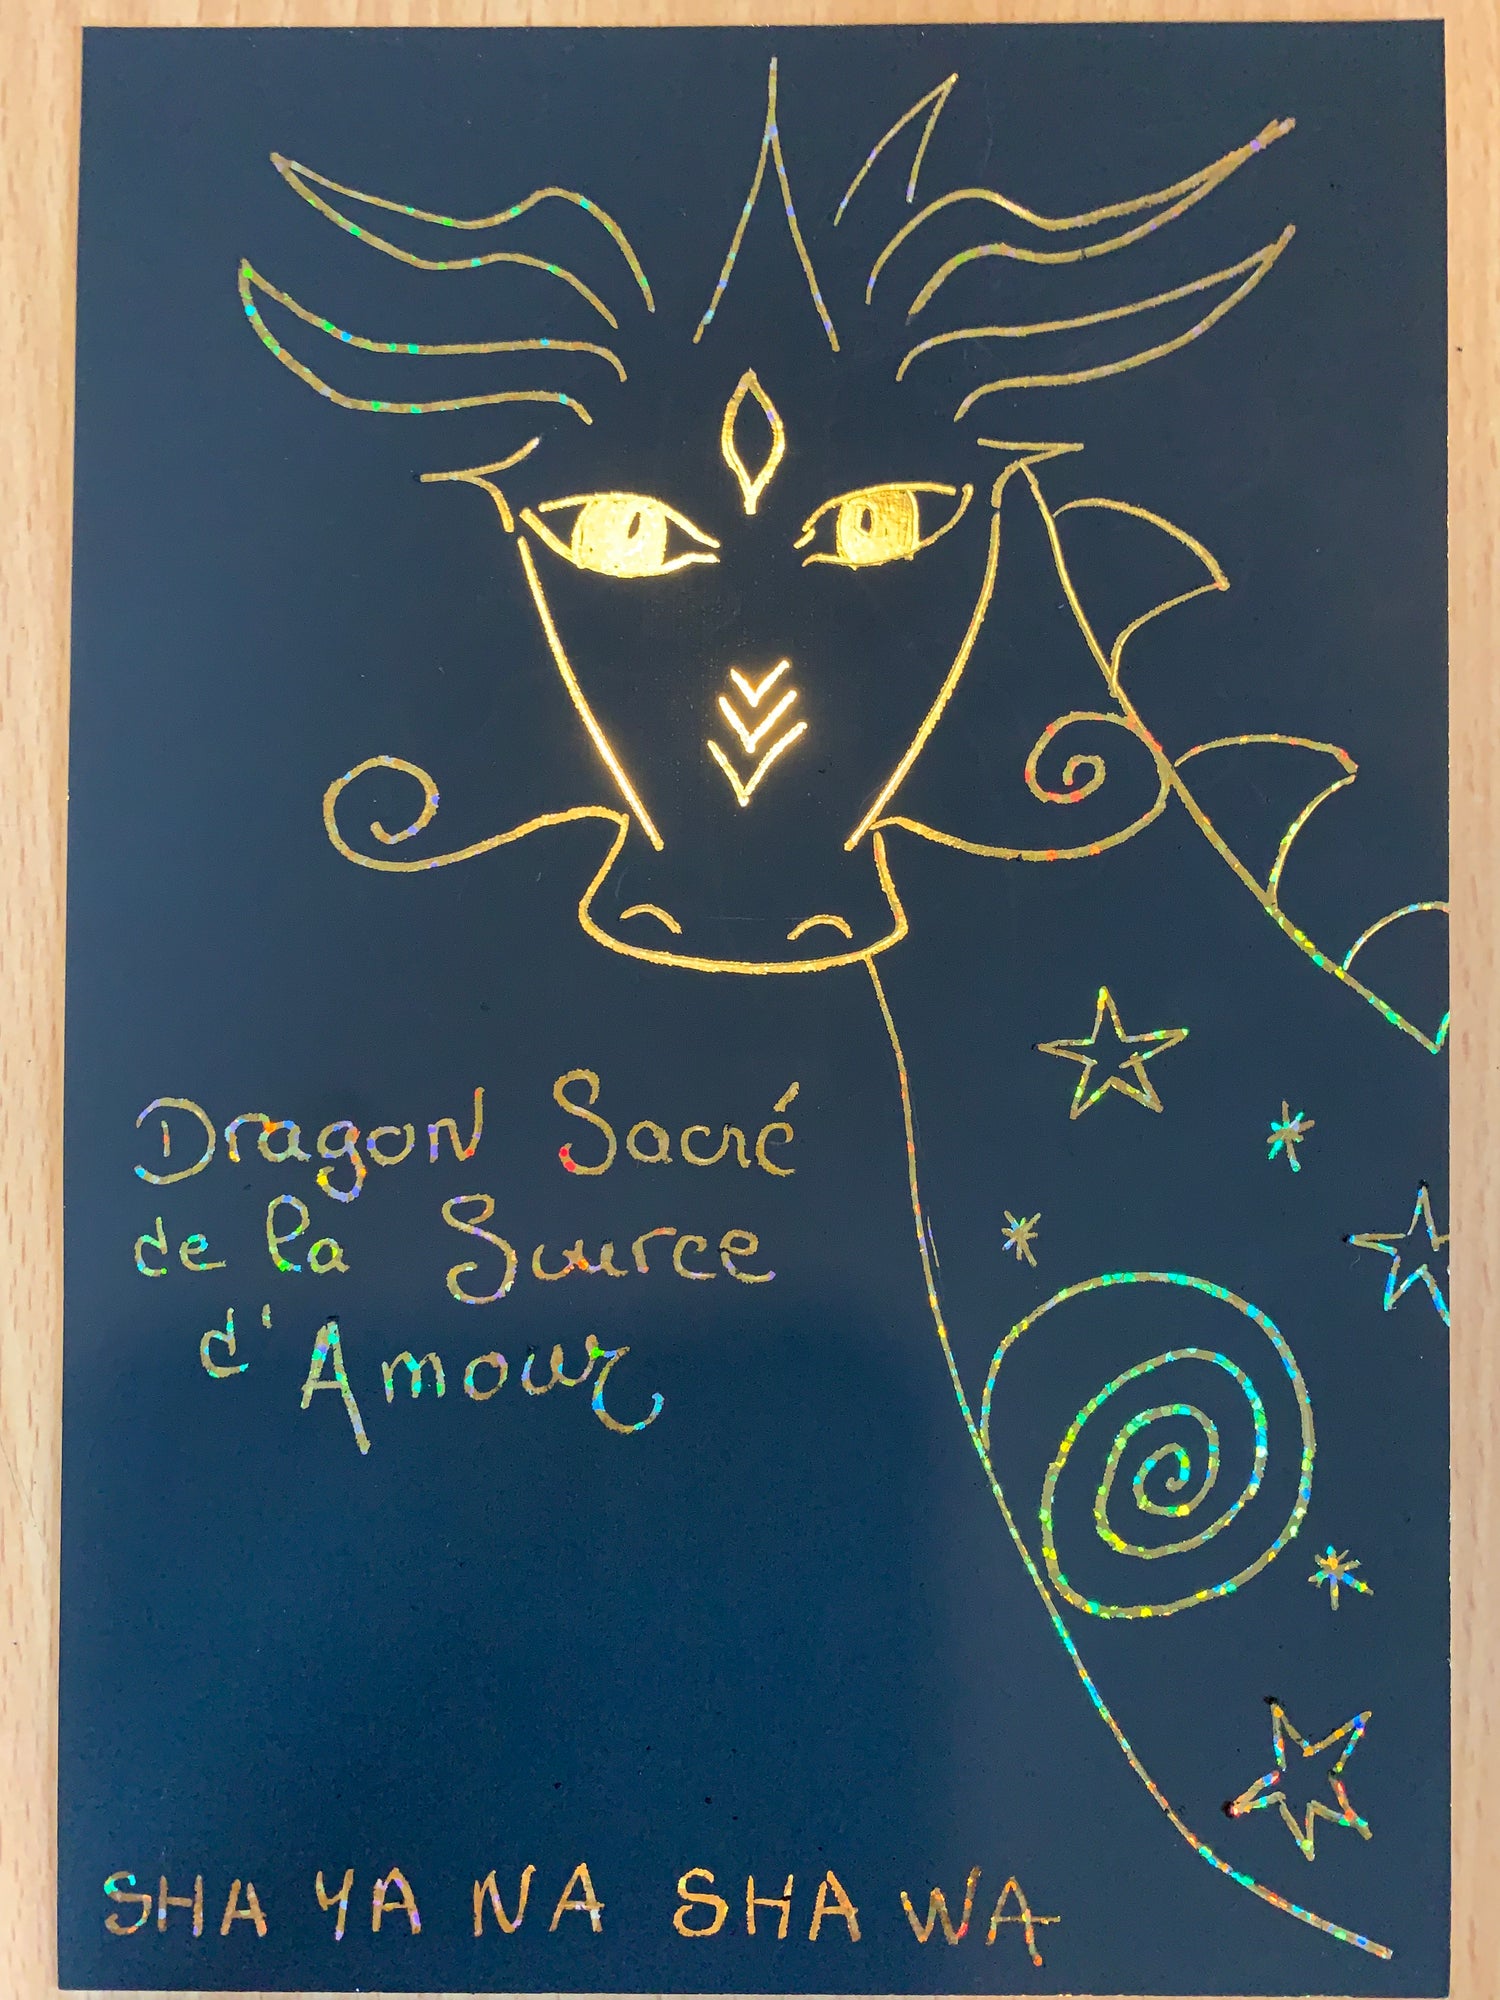 Dragon Sacré
de la Source
d'Amour
SHA YA NA SHA WA